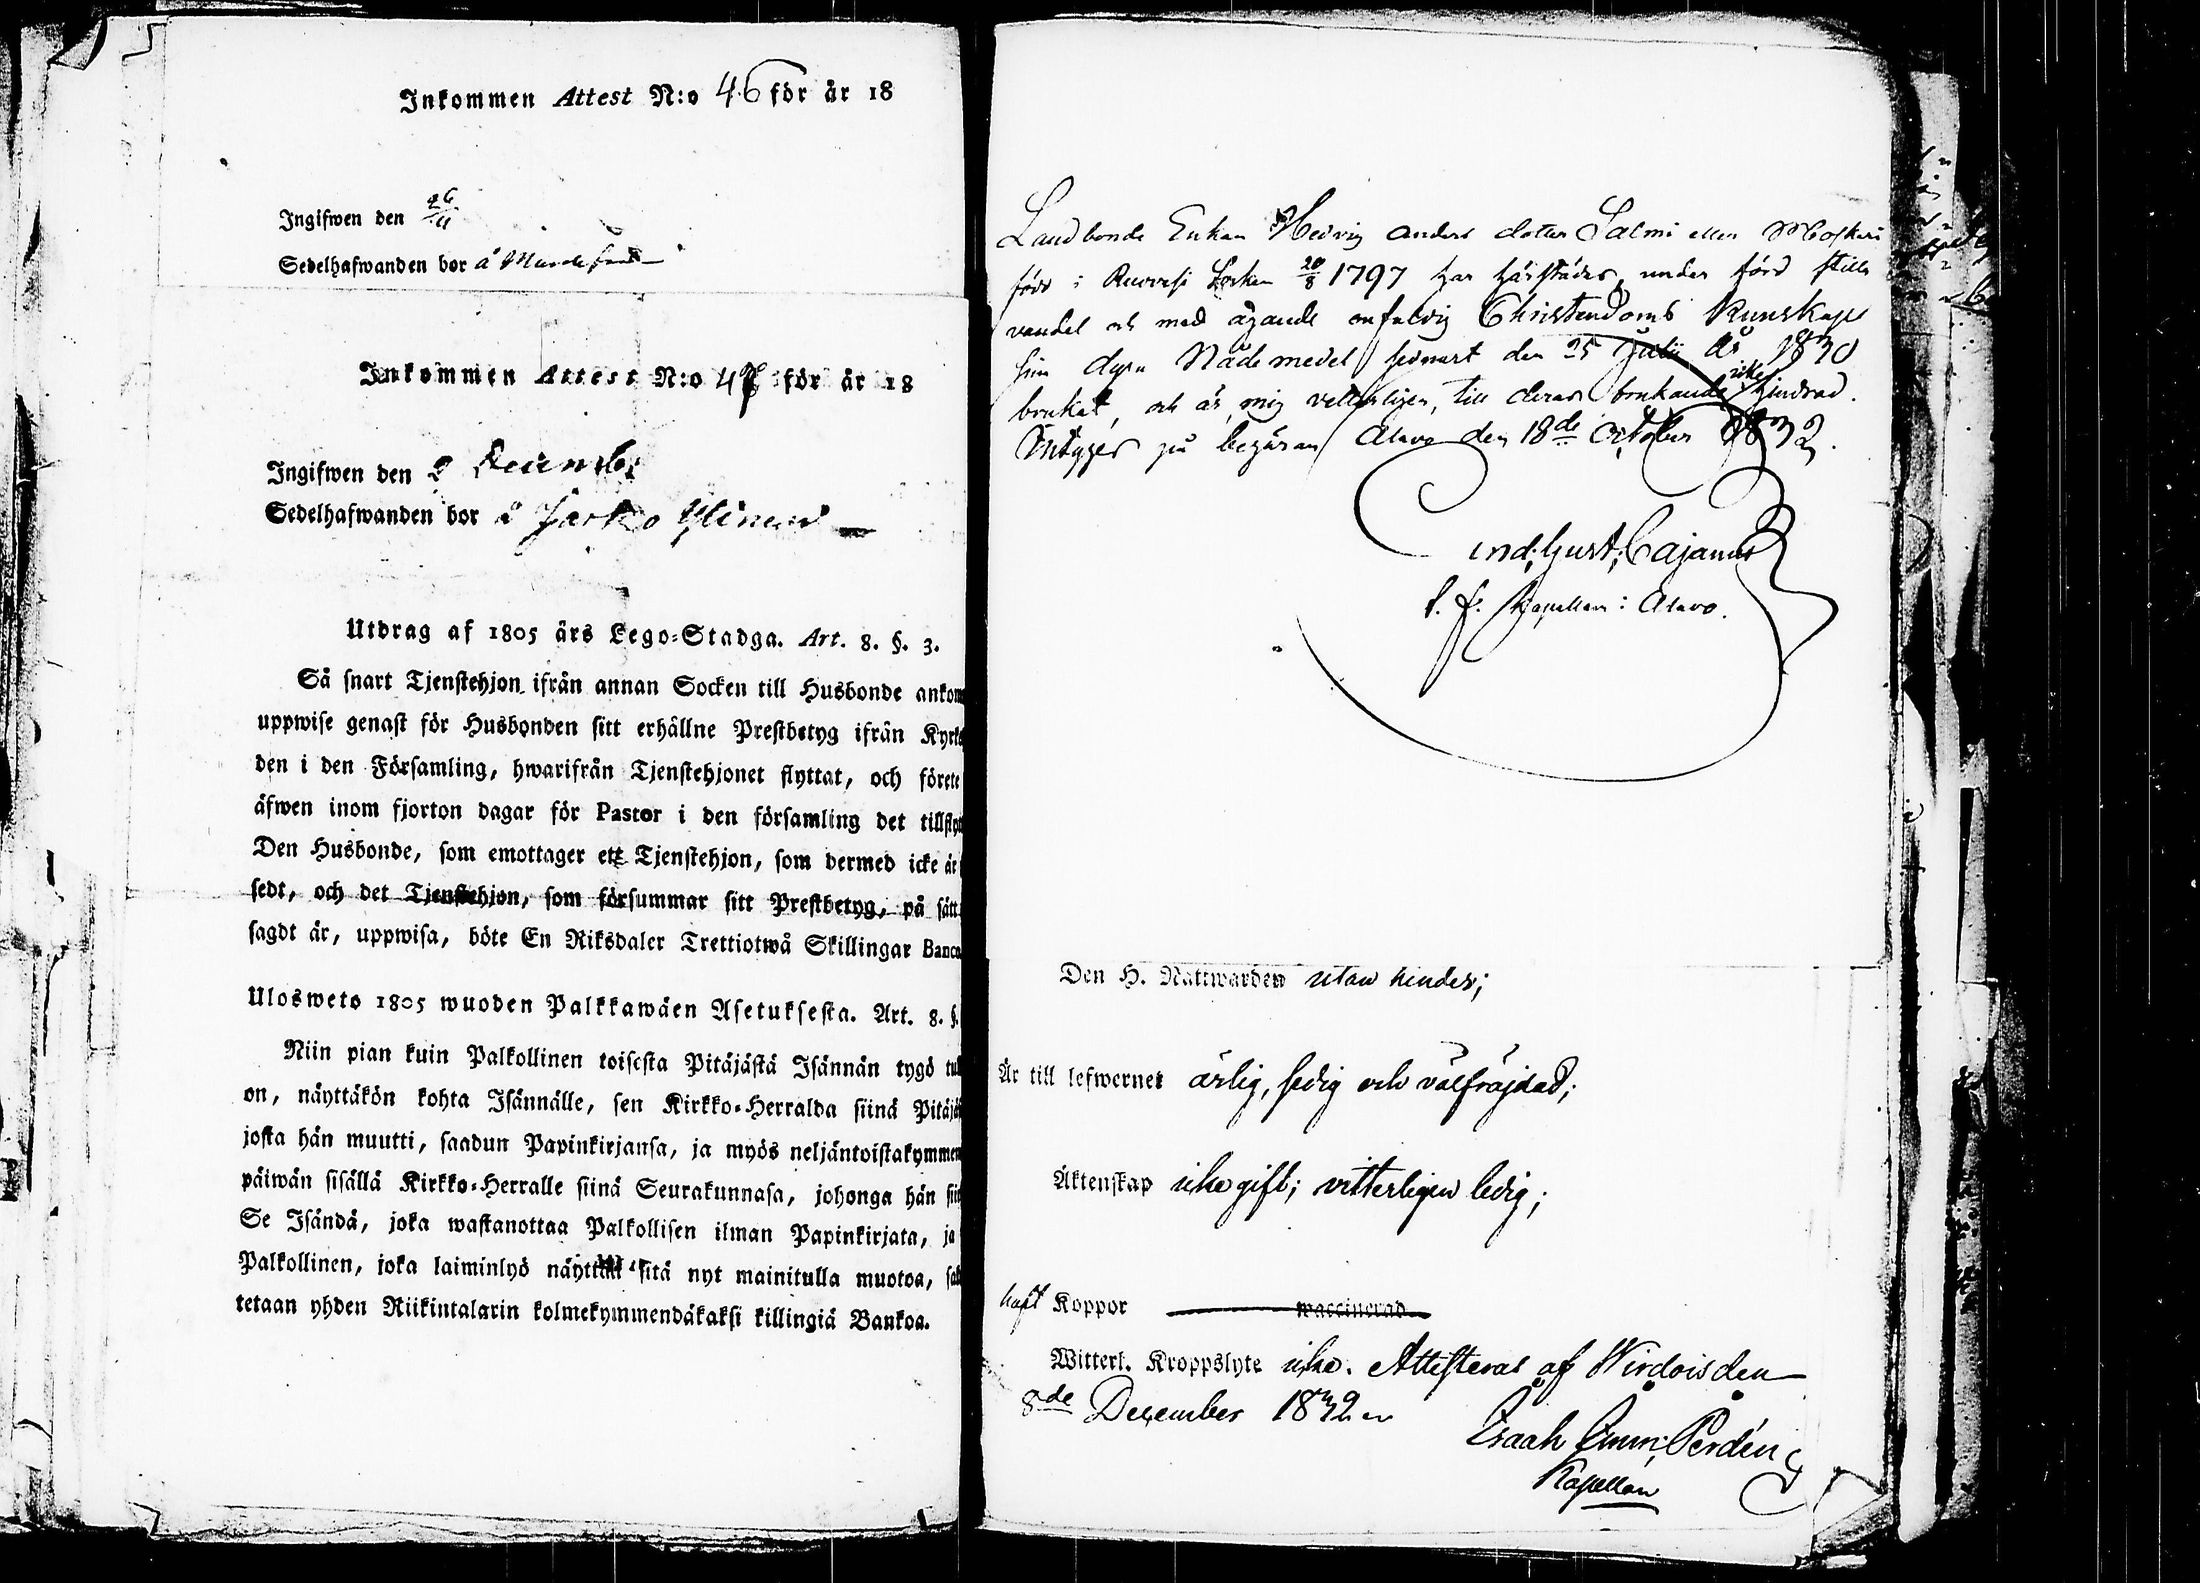 Inkommen Attest N:o 46 för år 18
Ingifwen den 26/11
Sedelhafwanden bor å
Inkommen Attest N:o 47 för år 18
Ingifwen den 2 December
Sedelhafwanden bor å Jarko Ylinen
Utdrag af 1805 års Lego-Stadga. Art. 8. §. 3.
Så snart Tjenstehjon ifrån annan Socken till Husbonde ankom
uppwise genast för Husbonden sitt erhållne Prestbetyg ifrån Kyrko
den i den Församling, hwarifrån Tjenstehjonet flyttat, och förete
äfwen inom fjorton dagar för Pastor i den församling det tillflytt
Den Husbonde, som emottager ett Tjenstehjon, som dermed icke är
sedt, och det Tjenstehjon, som försummar sitt Prestbetyg, på sätt
sagdt är, uppwisa, böte En Riksdaler Trettiotwå Skillingar Banco
Ulosweto 1805 wuoden Palkkawäen Asetuksesta. Art. 8. §.
Niin pian kuin Palkollinen toisesta Pitäjästä Isännän tygö tul
on, näyttäkön kohta Isännälle, sen Kirkko-Herralda siinä Pitäjä
josta hän muutti, saadun Papinkirjansa, ja myös neljäntoistakymmen
päiwän sisällä Kirkko-Herralle siinä Seurakunnasa, johonga hän siir
Se Isändä, joka wastanottaa Palkollisen ilman Papinkirjata, ja
Palkollinen, joka laiminlyö näyttää sitä nyt mainitulla muotoa, sak
tetaan yhden Riikintalarin kolmekymmendäkaksi killingiä Bankoa.
Landbonde Enkan Hedvig Anders dotter Salmi eller Moskari
född i Ruovesi Socken 20/8 1797 har härstädes, under förd stilla
vandel och med ägande enfaldig Christendoms Kunskap
sin dyra Nådemedel sednast den 25 Julii år 1830
brukat, och är, mig vetterligen, till deras brukande icke hindrad.
Intygas på begäran Alavo den 18de October 1832.
And: Gust: Cajanus
t. f. Kapellan i Alavo.
Den H. Nattwarden utan hinder;
Är till lefwernet ärlig, sedig och välfräjdad;
Äktenskap icke gift; vitterligen ledig;
haft Koppor waccinerad
Witterl. Kroppslyte icke. Attesteras af Wirdois den
8de December 1832
Esaah Emm: Perdén
Kapellan